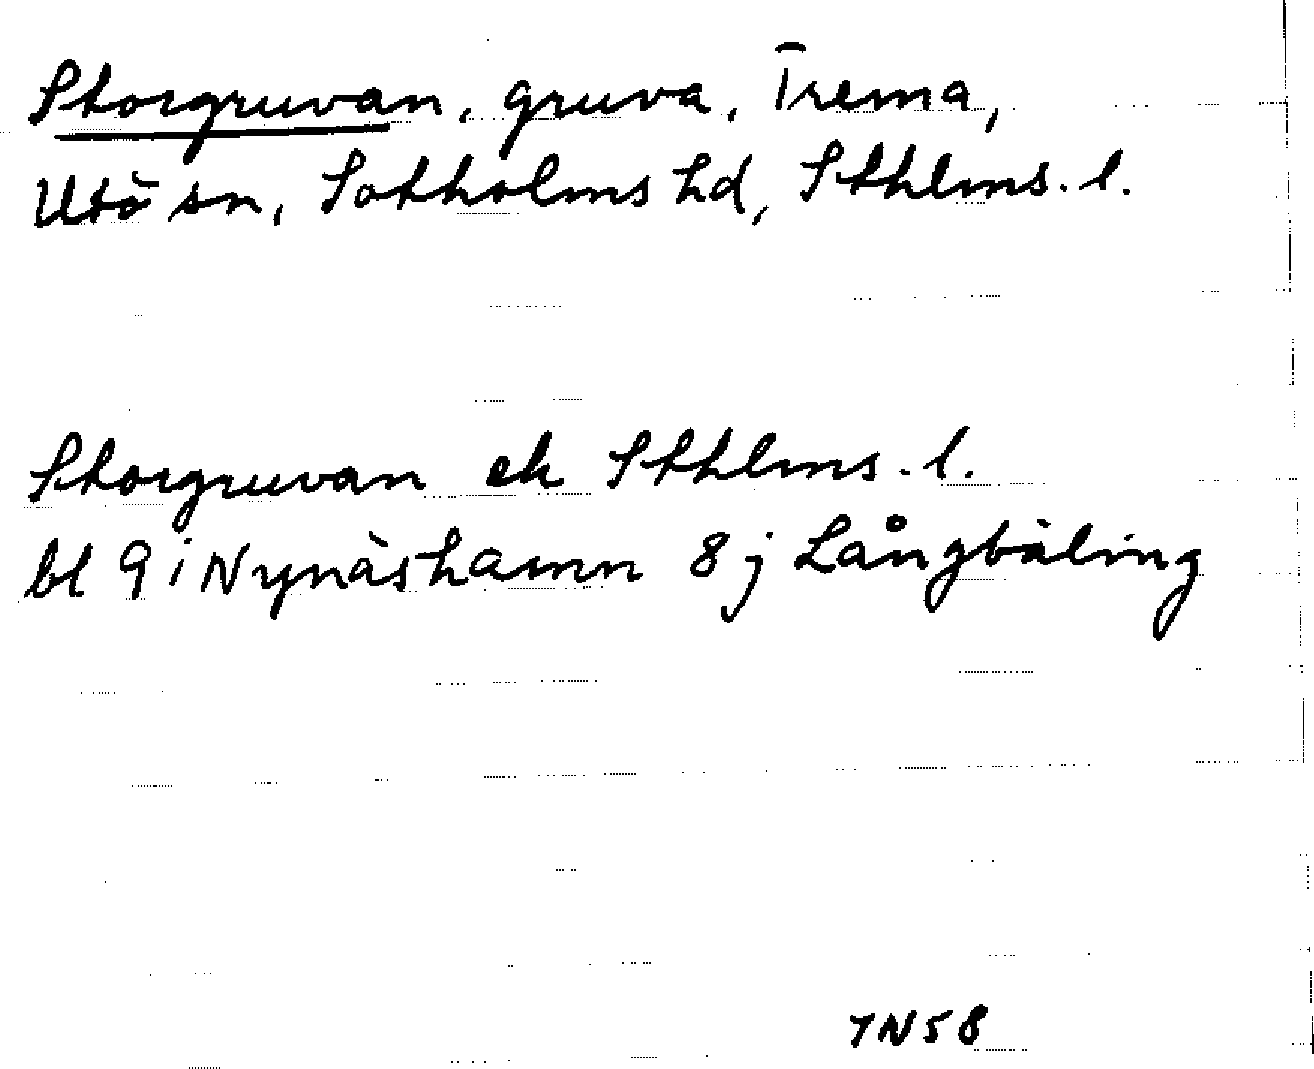 Storgruvan, gruva, Trema,
Utö sn, Sotholms hd, Sthlms. l.
Storgruvan ek Sthlms. l.
bl 9 i Nynäshamn 8 j Långbäling
TN58